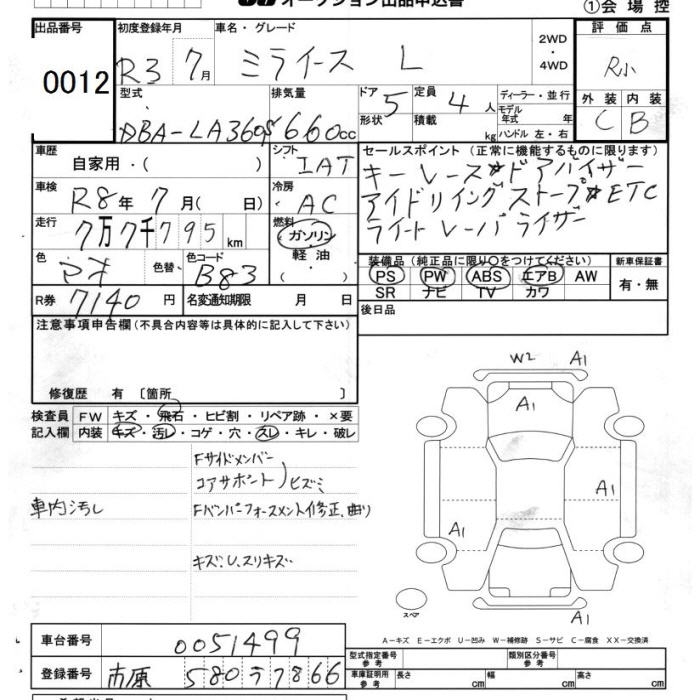 オークション出品申込書
①会場控
出品番号 初度登録年月 車名・グレード 評価点
0012 R3 7月 ミライース L 2WD・4WD R小
型式 排気量 ドア 定員 ディーラー・並行 外装 内装
DBA-LA360S 660cc 5 4人 モデル年式 年 C B
形状 積載 kg ハンドル 左・右
車歴 シフト セールスポイント(正常に機能するものに限ります)
自家用・( ) IAT キーレス☆ドアバイザー
車検 冷房 アイドリングストップ☆ETC
R8年7月( 日) AC ライトレーバライザー
走行 燃料
7万7千795km ガソリン・軽油・( )
色 色替 色コード 装備品(純正品に限り○をつけてください) 新車保証書
B83 PS PW ABS エアB AW 有・無
SR ナビ TV カワ
R券 7140円 名変通知期限 月 日 後日品
注意事項申告欄(不具合内容等は具体的に記入して下さい)
修復歴 有〔箇所 〕
検査員 FW キズ・飛石・ヒビ割・リペア跡・×要
記入欄 内装 キズ・汚レ・コゲ・穴・スレ・キレ・破レ
Fサイドメンバー
コアサポート)ヒズミ
車内汚し Fバンパーフォースメント修正、曲り
キズ、U、スリキズ
W2 A1
A1
A1
A1
A1
スペア
A-キズ E-エクボ U-凹み W-補修跡 S-サビ C-腐食 XX-交換済
車台番号 0051499
型式指定番号 参考 類別区分番号 参考
登録番号 市原 580 ラ 7866
車庫証明用 参考 長さ cm 幅 cm 高さ cm